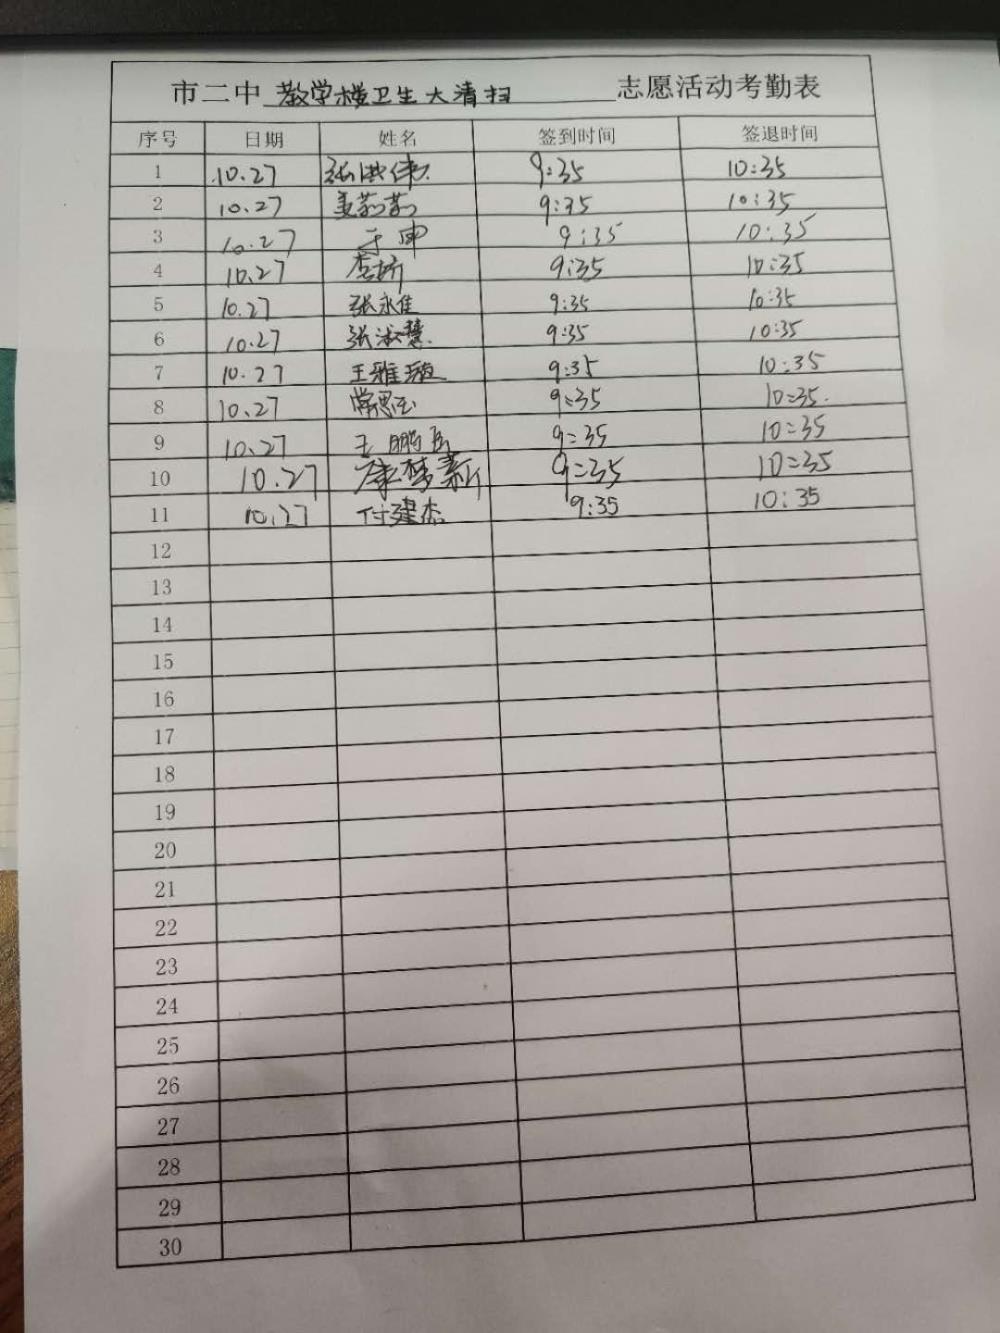 市二中 教学楼卫生大清扫 志愿活动考勤表
序号 日期 姓名 签到时间 签退时间
1 10.27 张洪伟 9:35 10:35
2 10.27 姜莉莉 9:35 10:35
3 10.27 于申 9:35 10:35
4 10.27 9:35 10:35
5 10.27 张永佳 9:35 10:35
6 10.27 张淑慧 9:35 10:35
7 10.27 王雅璇 9:35 10:35
8 10.27 常思玉 9:35 10:35
9 10.27 王鹏 9:35 10:35
10 10.27 康梦新 9:35 10:35
11 10.27 付建杰 9:35 10:35
12
13
14
15
16
17
18
19
20
21
22
23
24
25
26
27
28
29
30